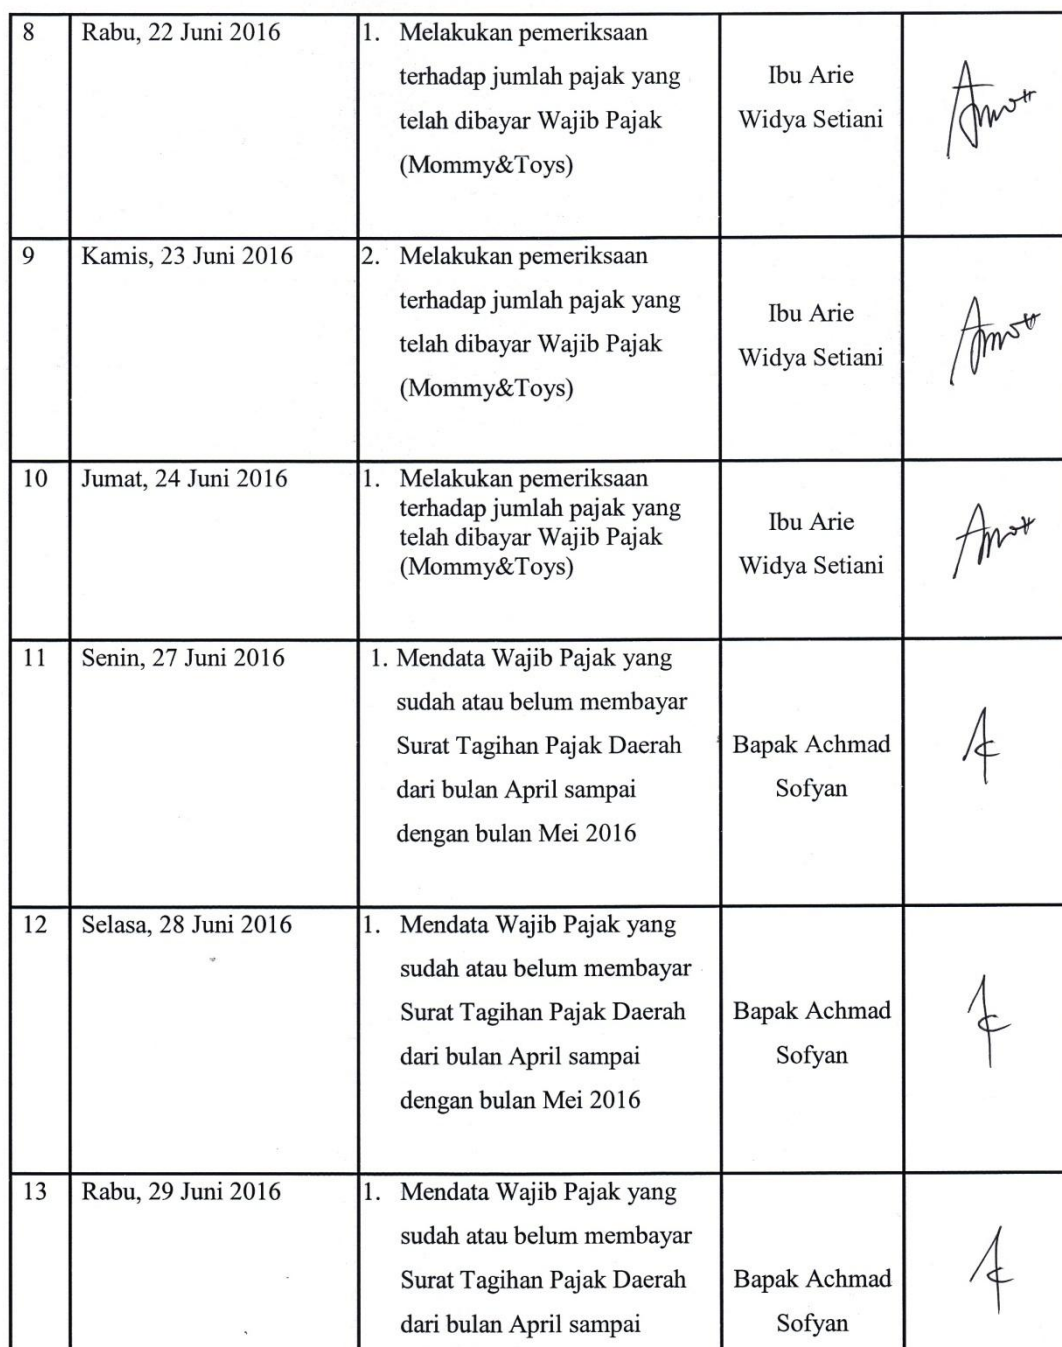 8 Rabu, 22 Juni 2016 1. Melakukan pemeriksaan
terhadap jumlah pajak yang
telah dibayar Wajib Pajak
(Mommy&Toys)
Ibu Arie
Widya Setiani
9 Kamis, 23 Juni 2016 2. Melakukan pemeriksaan
terhadap jumlah pajak yang
telah dibayar Wajib Pajak
(Mommy&Toys)
Ibu Arie
Widya Setiani
10 Jumat, 24 Juni 2016 1. Melakukan pemeriksaan
terhadap jumlah pajak yang
telah dibayar Wajib Pajak
(Mommy&Toys)
Ibu Arie
Widya Setiani
11 Senin, 27 Juni 2016 1. Mendata Wajib Pajak yang
sudah atau belum membayar
Surat Tagihan Pajak Daerah
dari bulan April sampai
dengan bulan Mei 2016
Bapak Achmad
Sofyan
12 Selasa, 28 Juni 2016 1. Mendata Wajib Pajak yang
sudah atau belum membayar
Surat Tagihan Pajak Daerah
dari bulan April sampai
dengan bulan Mei 2016
Bapak Achmad
Sofyan
13 Rabu, 29 Juni 2016 1. Mendata Wajib Pajak yang
sudah atau belum membayar
Surat Tagihan Pajak Daerah
dari bulan April sampai
Bapak Achmad
Sofyan